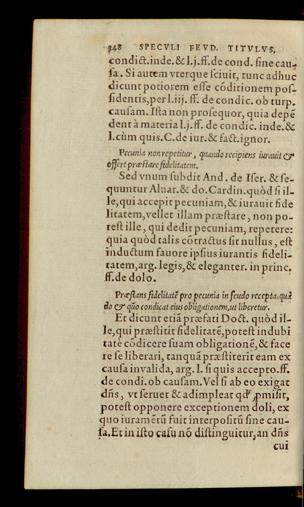 348 SPECVLI FEVD. TITVLVS,
condict.inde.&l.j.ff.de cond. sine cau-
sa. Si autem vterque sciuit, tunc adhuc
dicunt potiorem esse cōditionem pos-
sidentis,per l.iij. ff. de condic. ob turp.
causam. Ista non prosequor, quia depē
dent à materia l.j.ff. de condic. inde.&
l.cùm quis.C.de iur.& fact.ignor.
Pecunia non repetitur, quando recipiens iurauit &
offert præstare fidelitatem.
Sed vnum subdit And. de Iser. & se-
quuntur Aluar.& do.Cardin.quòd si il-
le,qui accepit pecuniam,& iurauit fide
litatem,vellet illam præstare, non po-
test ille, qui dedit pecuniam, repetere:
quia quòd talis cōtractus sit nullus, est
inductum fauore ipsius iurantis fideli-
tatem,arg.legis,& eleganter. in princ.
ff.de dolo.
Præstans fidelitatē pro pecunia in feudo recepta,quā
do & quo condicat eius obligationem,ut liberetur.
Et dicunt etiā præfati Doct. quòd il-
le,qui præstitit fidelitatē,potest indubi
tatè cōdicere suam obligationē,& face
re se liberari, tanquā præstiterit eam ex
causa inualida, arg. l. si quis accepto.ff.
de condi.ob causam.Vel si ab eo exigat
dn̄s, vt seruet & adimpleat qd' ꝓmisit,
potest opponere exceptionem doli, ex
quo iuramētū fuit interpositū sine cau-
sa.Et in isto casu nō distinguitur,an dn̄s
cui